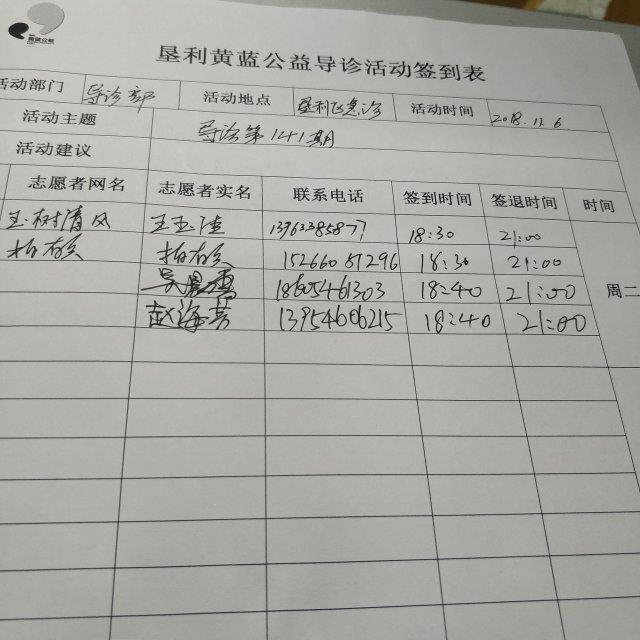 黄蓝公益
垦利黄蓝公益导诊活动签到表
活动部门 导诊部 活动地点 活动时间 2018.11.6
活动主题 导诊第141期
活动建议
志愿者网名 志愿者实名 联系电话 签到时间 签退时间 时间
玉树清风 18:30 21:00
15266051296 18:30 21:00
18605461303 18:40 21:00 周二
赵海英 13954606215 18:40 21:00